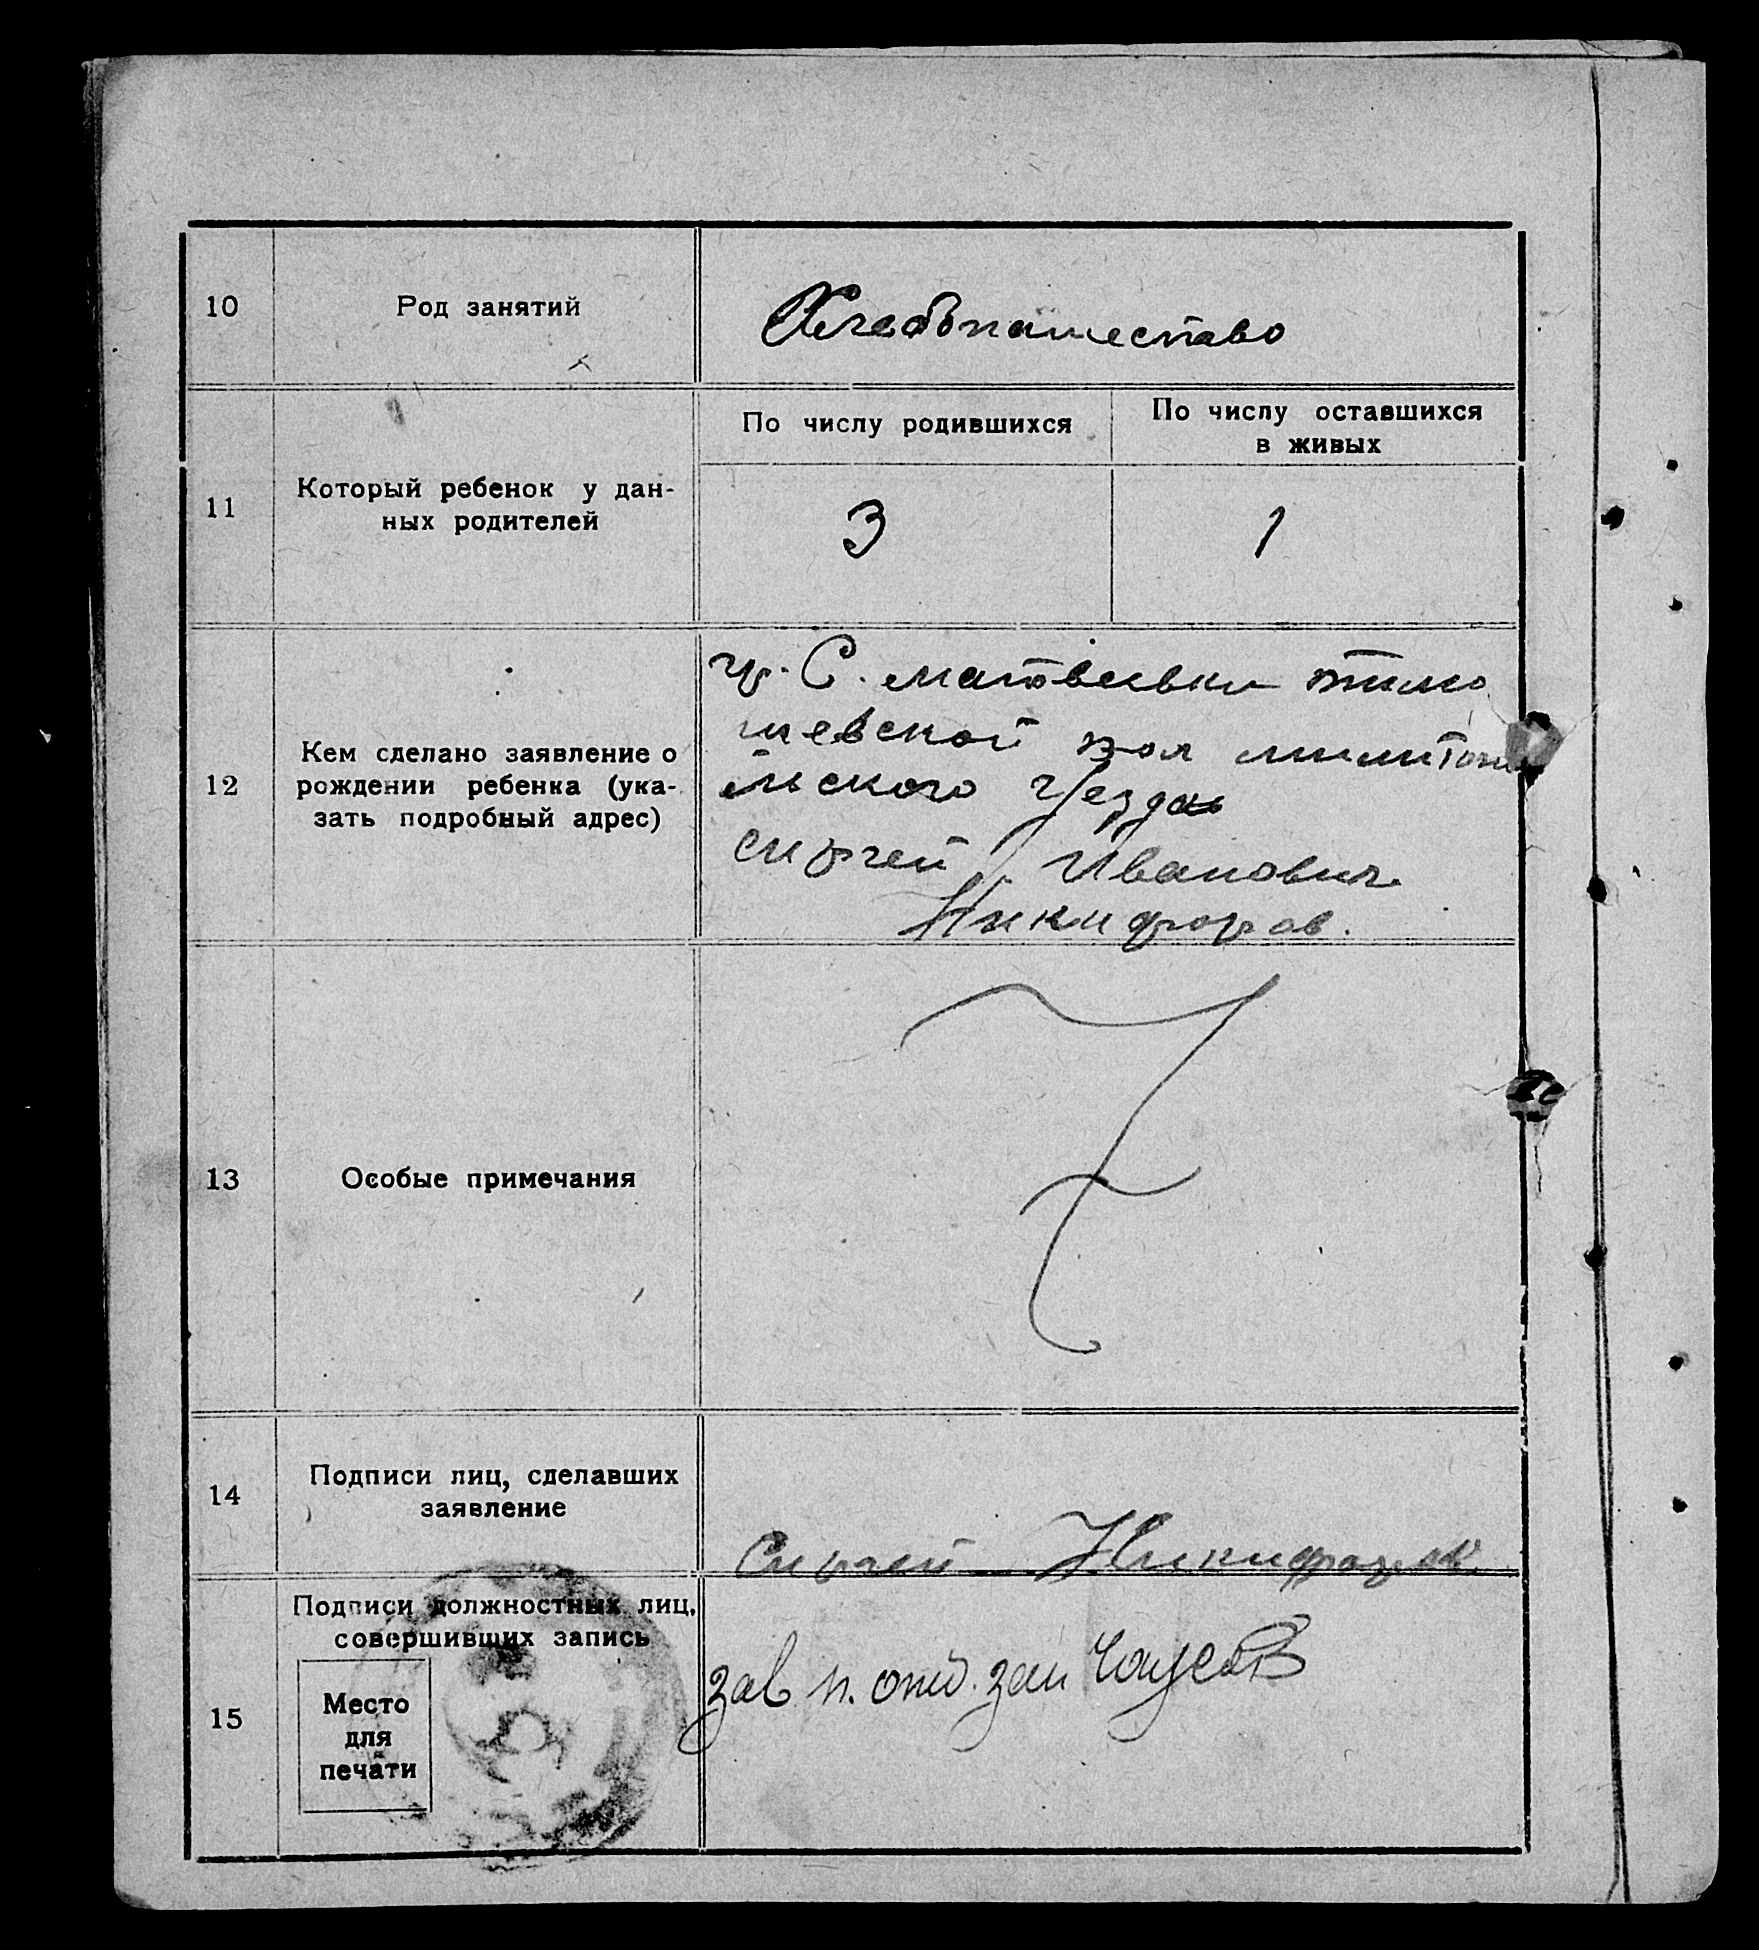 10
Род занятий
Хлебопашество
11
Который ребенок у дан-
ных родителей
По числу родившихся
По числу оставшихся
в живых
3
1
12
Кем сделано заявление о
рождении ребенка (ука-
зать подробный адрес)
гр. С. матвеевки тимо
шевской вол
льского уезда
Сергей Иванович
Никифоров.
13
Особые примечания
14
Подписи лиц, сделавших
заявление
Сергей Никифоров
15
Подписи должностных лиц,
совершивших запись
Место
для
печати
зав п. отд.